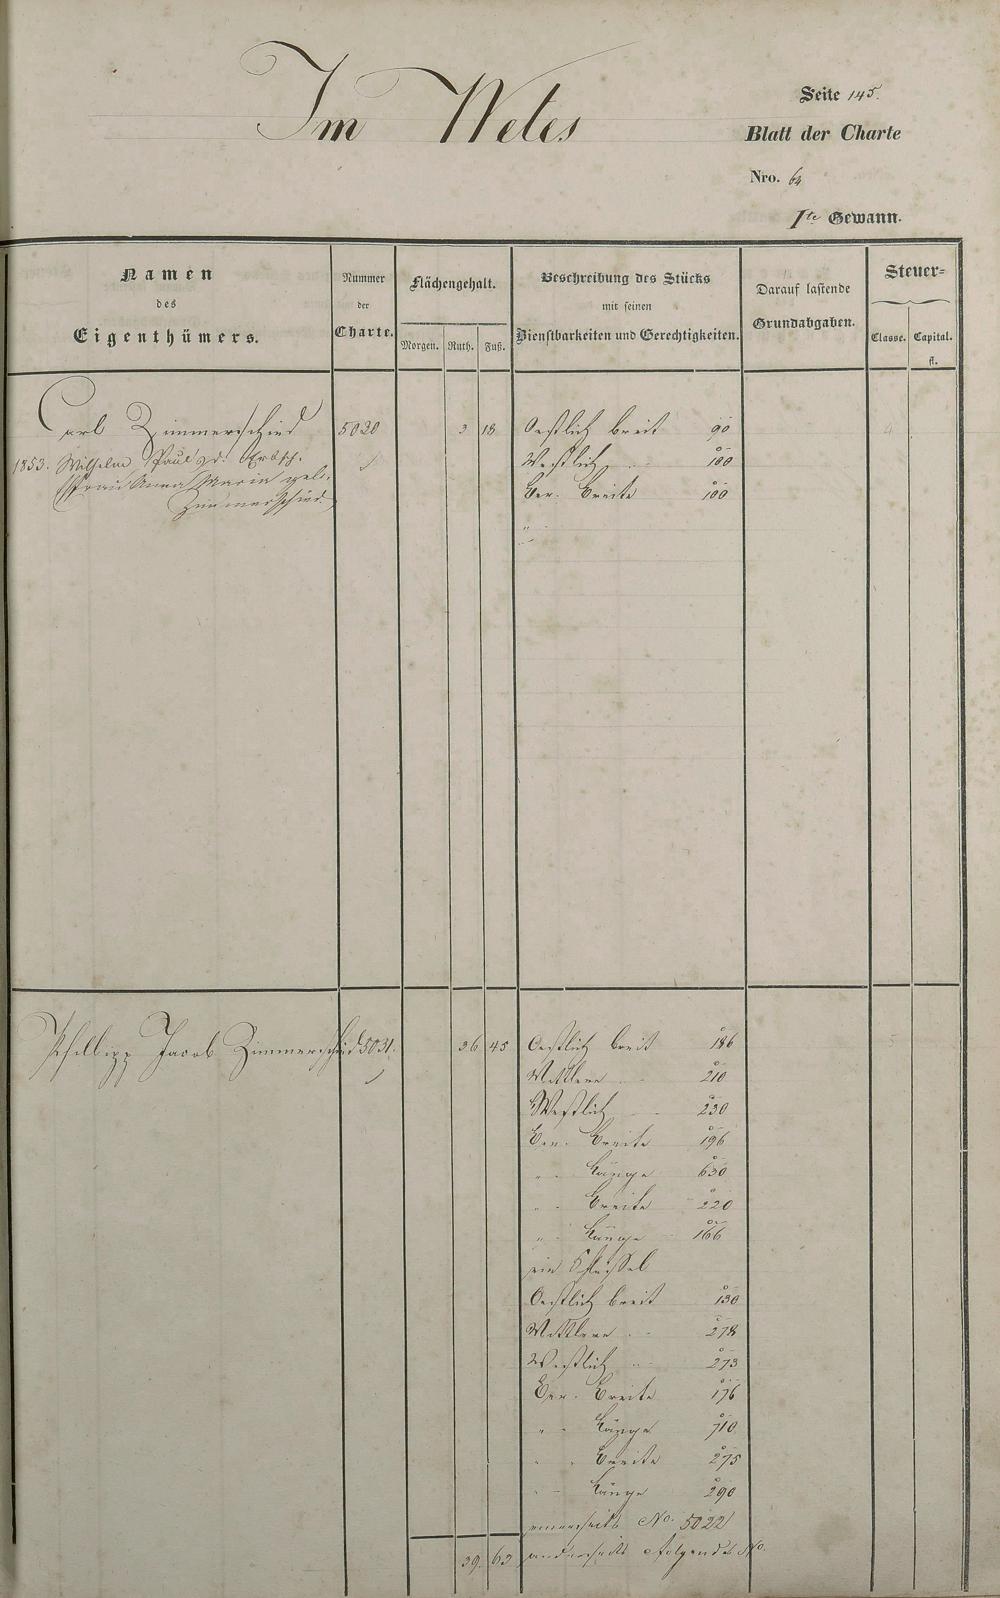 Im Wetes
Seite 145.
Blatt der Charte
Nro. 64
Ite Gewann.
Namen
des
Eigenthümers.
Nummer
der
Charte.
Flächengehalt.
Morgen. Ruth. Fuß.
Beschreibung des Stücks
mit seinen
Dienstbarkeiten und Gerechtigkeiten.
Darauf lastende
Grundabgaben.
Steuer=
Classe. Capital.
fl.
Carl Zimmerschied 5020 3 18 Oestlich breit 90
1853. Wilhelm Paul Westlich " 100
Frau Anna Maria geb. Ber. Breite 100
Zimmerschied.
Philipp Jacob Zimmerschied 5031. 36 45 Oestlich breit 186
Mittlere " 210
Westlich " 230
Ber. Breite 196
" " Länge 630
" " Breite 220
" " Länge 166
ein
Oestlich breit 130
Mittlere " 278
Westlich " 273
Ber. Breite 176
" " Länge 710
" " Breite 275
" " Länge 290
einerseits No. 5022
39 63 anderseits folgends No.